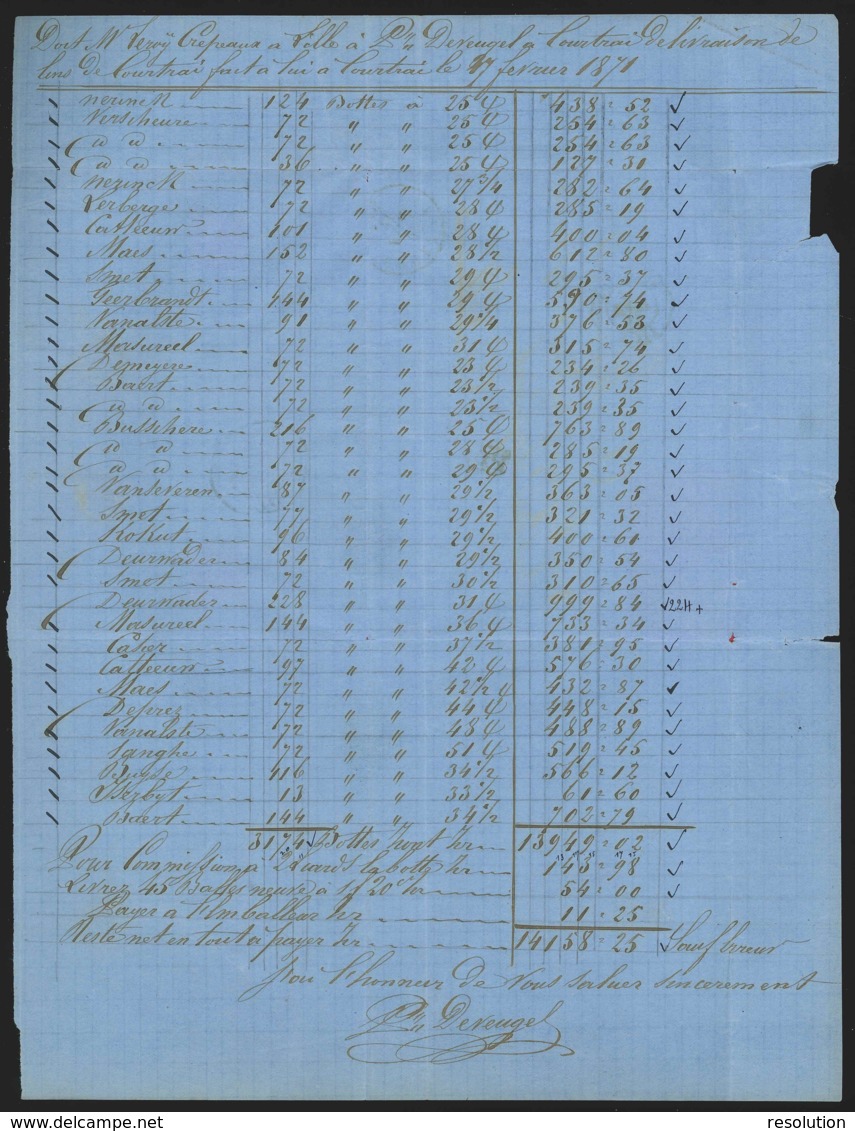 Doit Mr Leroÿ Crepeaux a Lille à Pre Deveugel a Courtrai de livraison de
lins de Courtrai fait à lui a Courtrai le 17 fevrier 1871
nerinck 124 Bottes à 25 ₰ 438=52
Verscheure 72 " " 25 ₰ 254=63
a a 72 " " 25 ₰ 254=63
a a 36 " " 25 ₰ 127=31
nerinck 72 " " 27 3/4 282=64
Lerberge 72 " " 28 ₰ 285=19
Catteeuw 101 " " 28 ₰ 400=04
Maes 152 " " 28 1/2 612=80
Smet 72 " " 29 ₰ 295=37
Geerbrandt 144 " " 29 ₰ 590=74
Vanalste 91 " " 29 1/4 376=53
Masureel 72 " " 31 ₰ 315=74
Demeyere 72 " " 23 ₰ 234=26
Baert 72 " " 23 1/2 239=35
a a 72 " " 23 1/2 239=35
Busschere 216 " " 25 ₰ 763=89
a a 72 " " 28 ₰ 285=19
a a 72 " " 29 ₰ 295=37
Vanseveren 87 " " 29 1/2 363=05
Smet 77 " " 29 1/2 321=32
Kokut 96 " " 29 1/2 400=61
Deurwader 84 " " 29 1/2 350=54
Smet 72 " " 30 1/2 310=65
Deurwader 228 " " 31 ₰ 999=84 22H+
Masureel 144 " " 36 ₰ 733=34
72 " " 37 1/2 381=95
Catteeuw 97 " " 42 ₰ 576=30
Maes 72 " " 42 1/2 ₰ 432=87
Deprez 72 " " 44 ₰ 448=15
Vanalste 72 " " 48 ₰ 488=89
Langhe 72 " " 51 ₰ 519=45
Buyse 116 " " 34 1/2 566=12
13 " " 33 1/2 61=60
Baert 144 " " 34 1/2 702=79
3174 Bottes font fr 13949=02
Pour Commission à 2 Liards la botte fr 143=98
Livrez 45 Balles neuve à 1f20c fr 54=00
Payer a l'Emballeur fr 11=25
Reste net en tout à payer fr 14158=25 Sauf Erreur
J'ai l'honneur de Vous saluer sincerement
Pre Deveugel
resolution